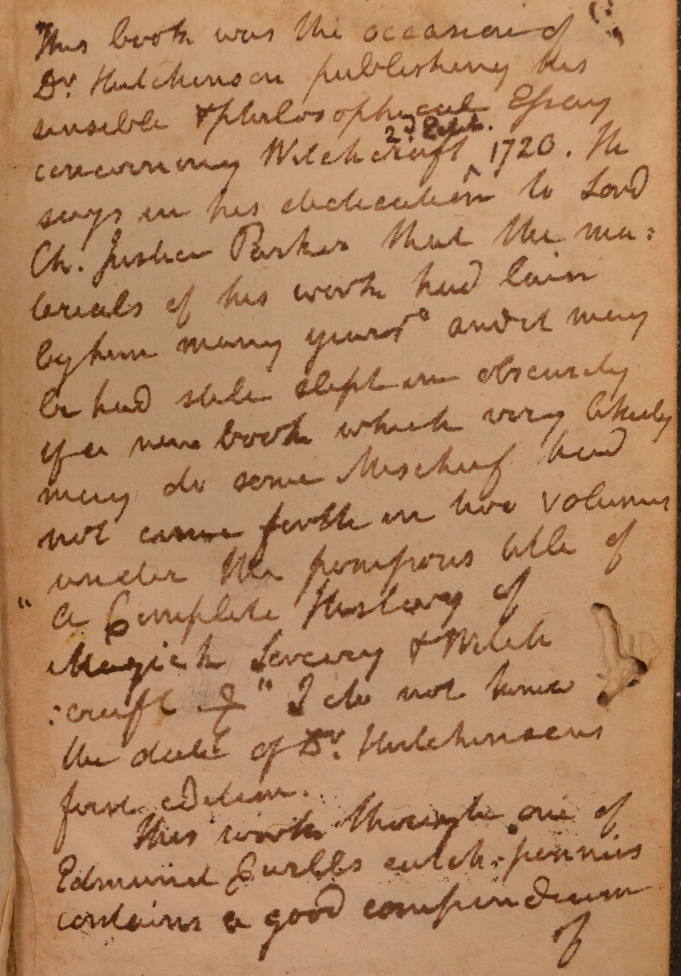 This book was the occasion of
Dr. Hutchinson publishing his
sensible & philosophical Essay
concerning Witchcraft 2d. Edit. 1720. He
says in his dedication to Lord
Ch. Justice Parker that the ma:
terials of his work had lain
by him many years and it may
be had still slept in obscurity
if a new book which very likely
may do some Mischief had
not came forth in two volumes
under the pompous title of
"A Complete History of
Magick Sorcery & Witch
:craft &" I do not know
the date of Dr. Hutchinsons
first edition.
This work though one of
Edmund Curlls catch-pennies
contains a good compendium
of